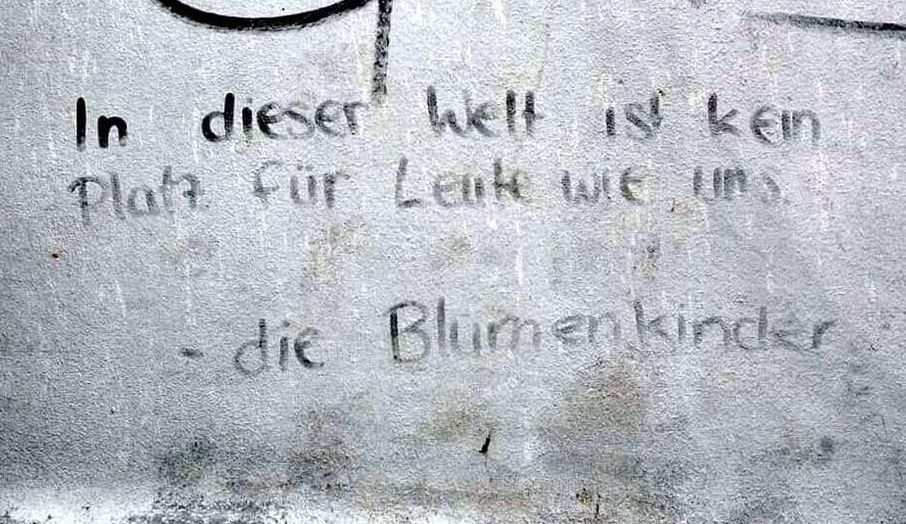 In dieser Welt ist kein
Platz für Leute wie uns.
- die Blumenkinder